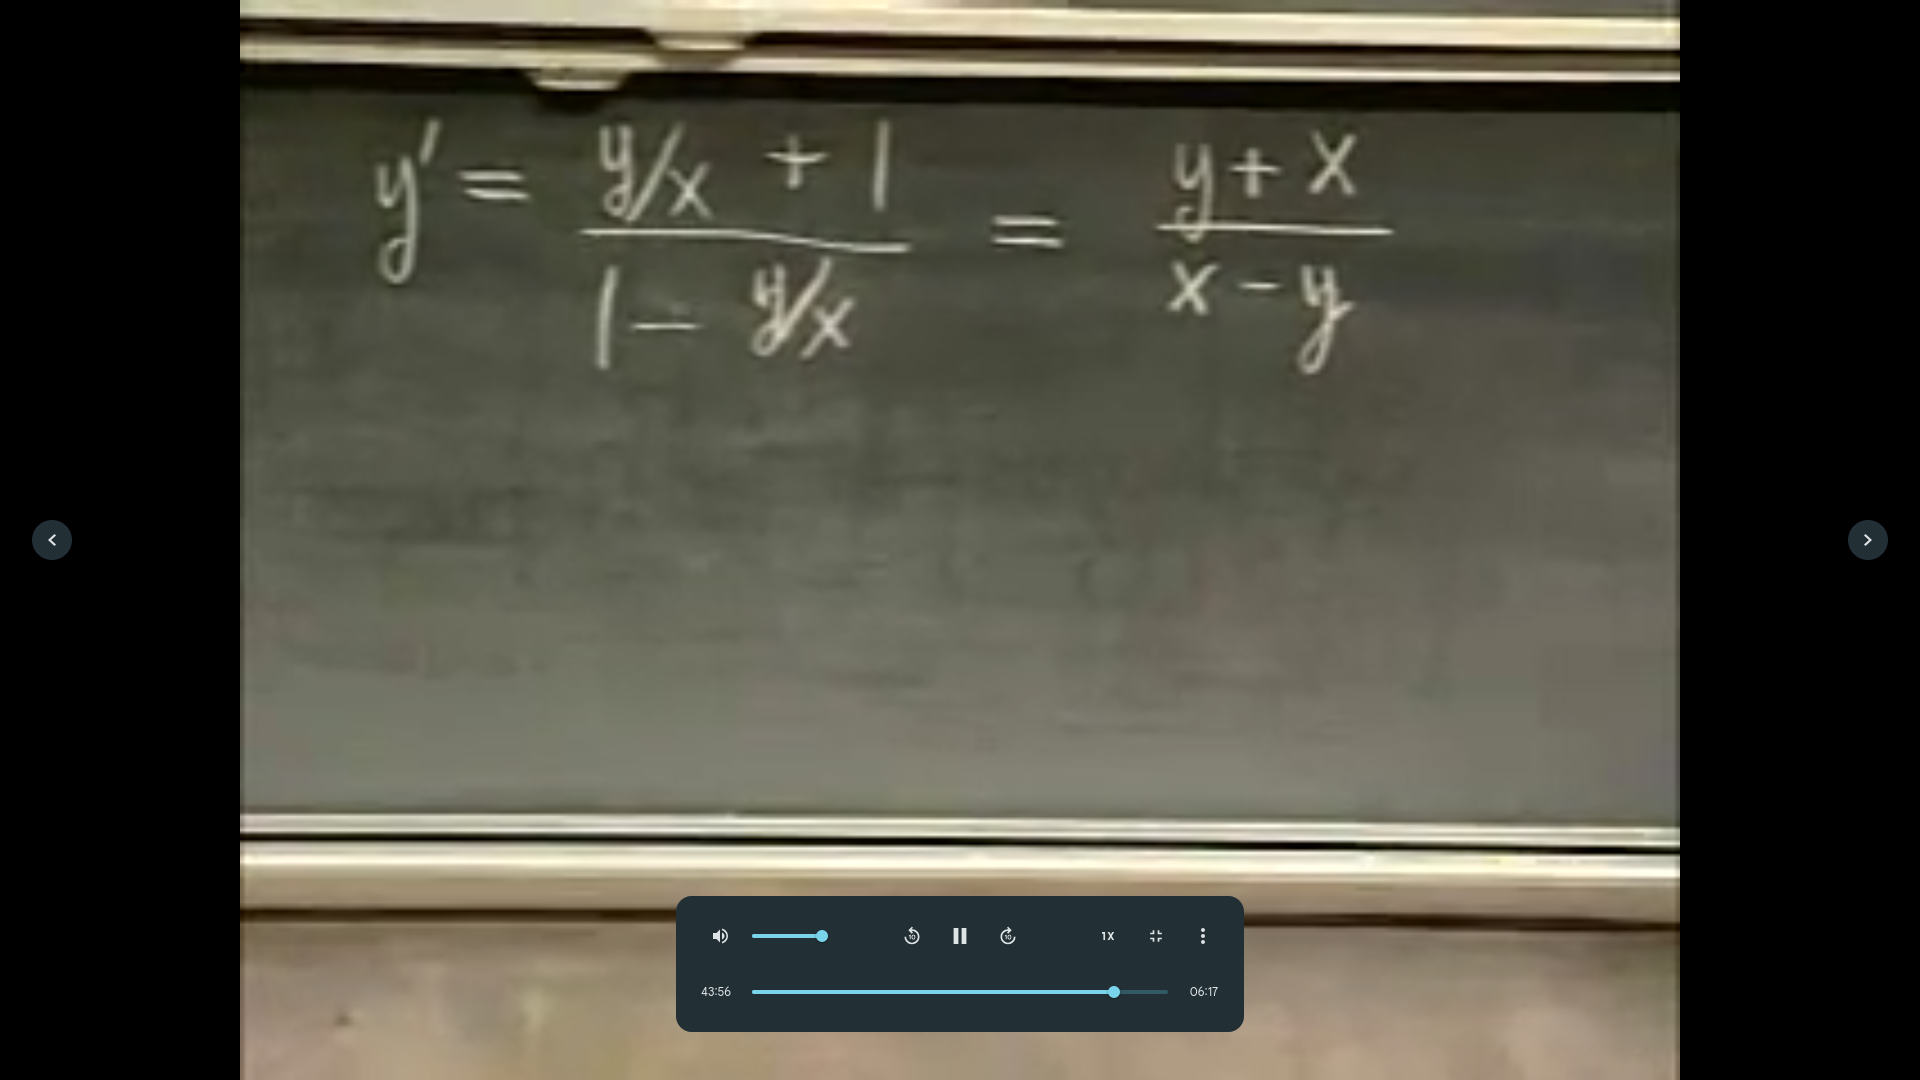 y' = (y/x + 1)/(1 - y/x) = (y + x)/(x - y)
10 10 1X
43:56 06:17